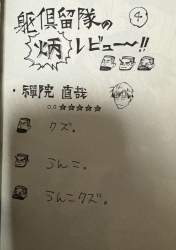 躯倶留隊の
④
炳レビュー〜!!
・禪院 直哉
○○☆☆☆☆☆
クズ。
うんこ。
うんこクズ。